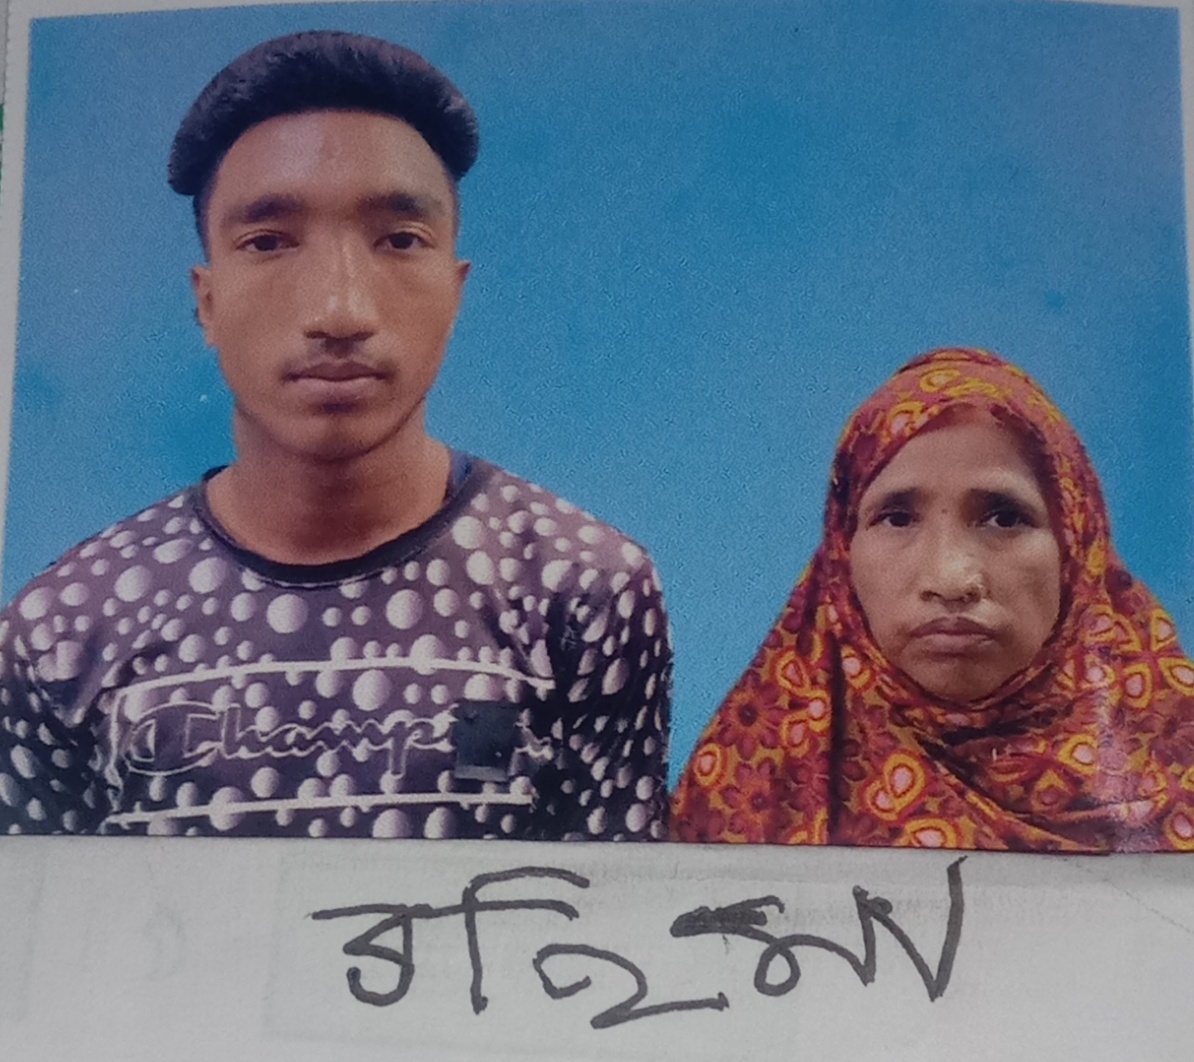 Champ
রহিমা